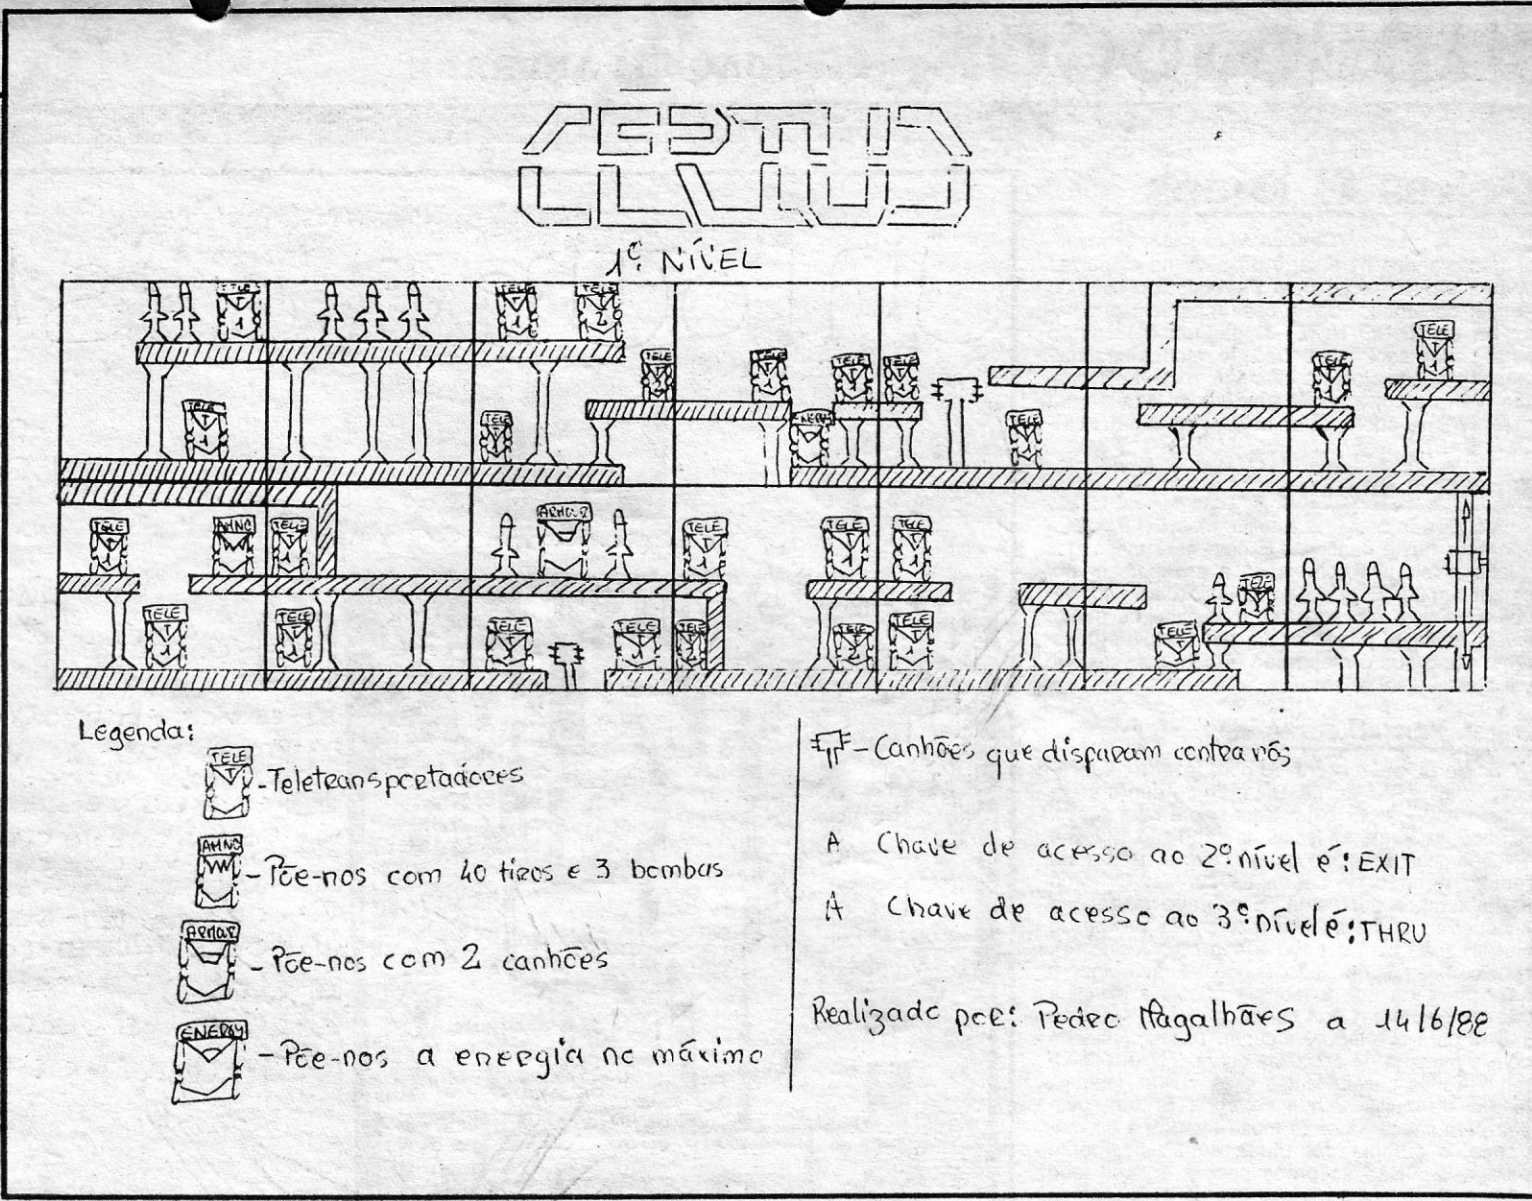 1º NÍVEL
TELE TELE TELE
1 1 2
TELE TELE TELE TELE TELE TELE
TELE TELE ENERGY TELE
TELE AMNO TELE ARMOUR TELE TELE TELE TELE
TELE TELE TELE TELE TELE TELE TELE TELE
Legenda:
TELE
T
- Teletransportadores
AMNO
- Põe-nos com 40 tiros e 3 bombas
ARMOR
- Põe-nos com 2 canhões
ENERGY
- Põe-nos a energia no máximo
- Canhões que disparam contra nós
A Chave de acesso ao 2º nível é: EXIT
A Chave de acesso ao 3º nível é: THRU
Realizado por: Pedro Magalhães a 14/6/88